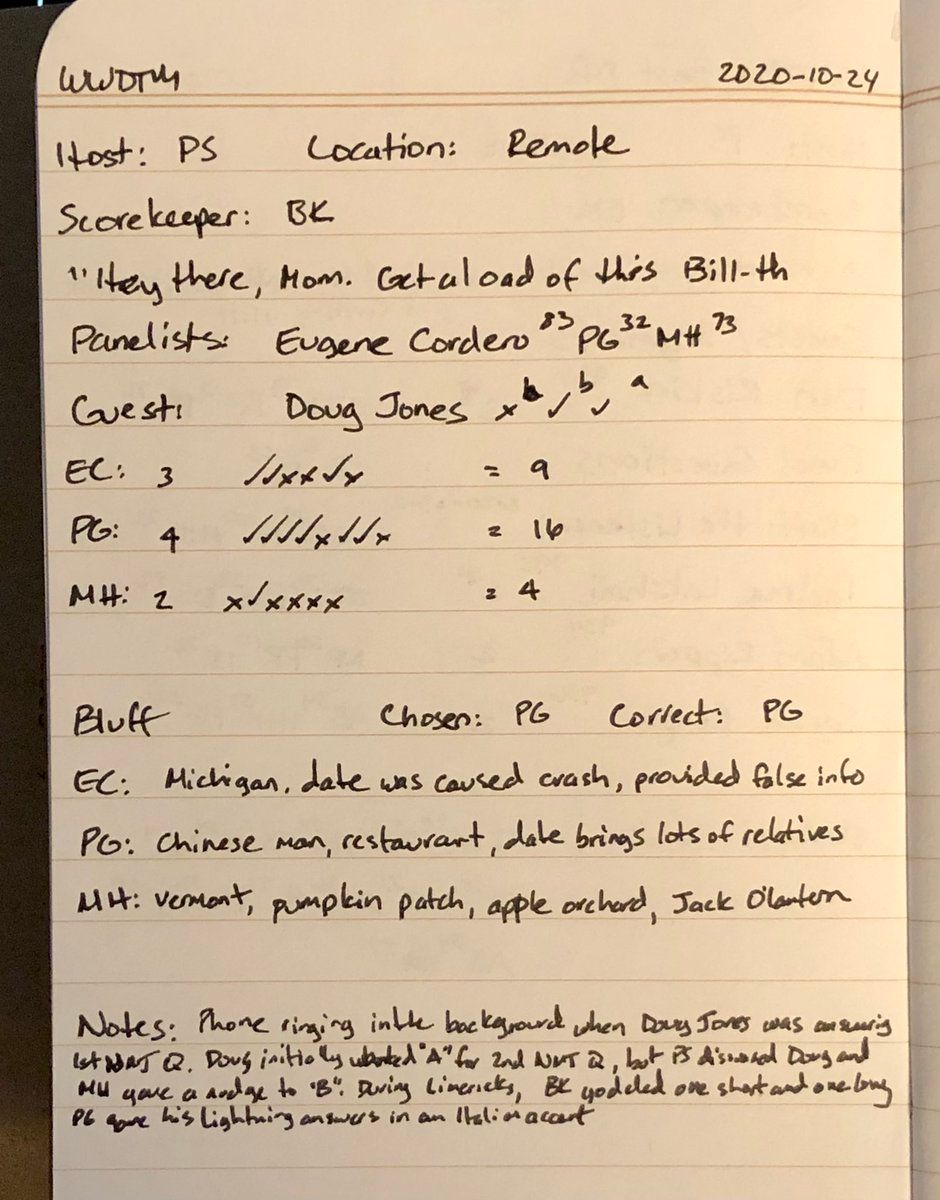 WWDTM 2020-10-24
Host: PS Location: Remote
Scorekeeper: BK
"Hey there, Mom. Get a load of this Bill-th
Panelists: Eugene Cordero 83 PG 32 MH 73
Guest: Doug Jones x b ✓ b ✓ a
EC: 3 ✓✓xx✓x = 9
PG: 4 ✓✓✓✓x✓✓x = 16
MH: 2 x✓xxxx = 4
Bluff Chosen: PG Correct: PG
EC: Michigan, date was caused crash, provided false info
PG: Chinese man, restaurant, date brings lots of relatives
MH: Vermont, pumpkin patch, apple orchard, Jack O'lantern
Notes: Phone ringing in the background when Doug Jones was answering
1st NMJ Q. Doug initially wanted "A" for 2nd NMJ Q, but PS Doug and
MH gave a nudge to "B". During Limericks, BK yodeled one short and one long
PG gave his Lightning answers in an Italian accent